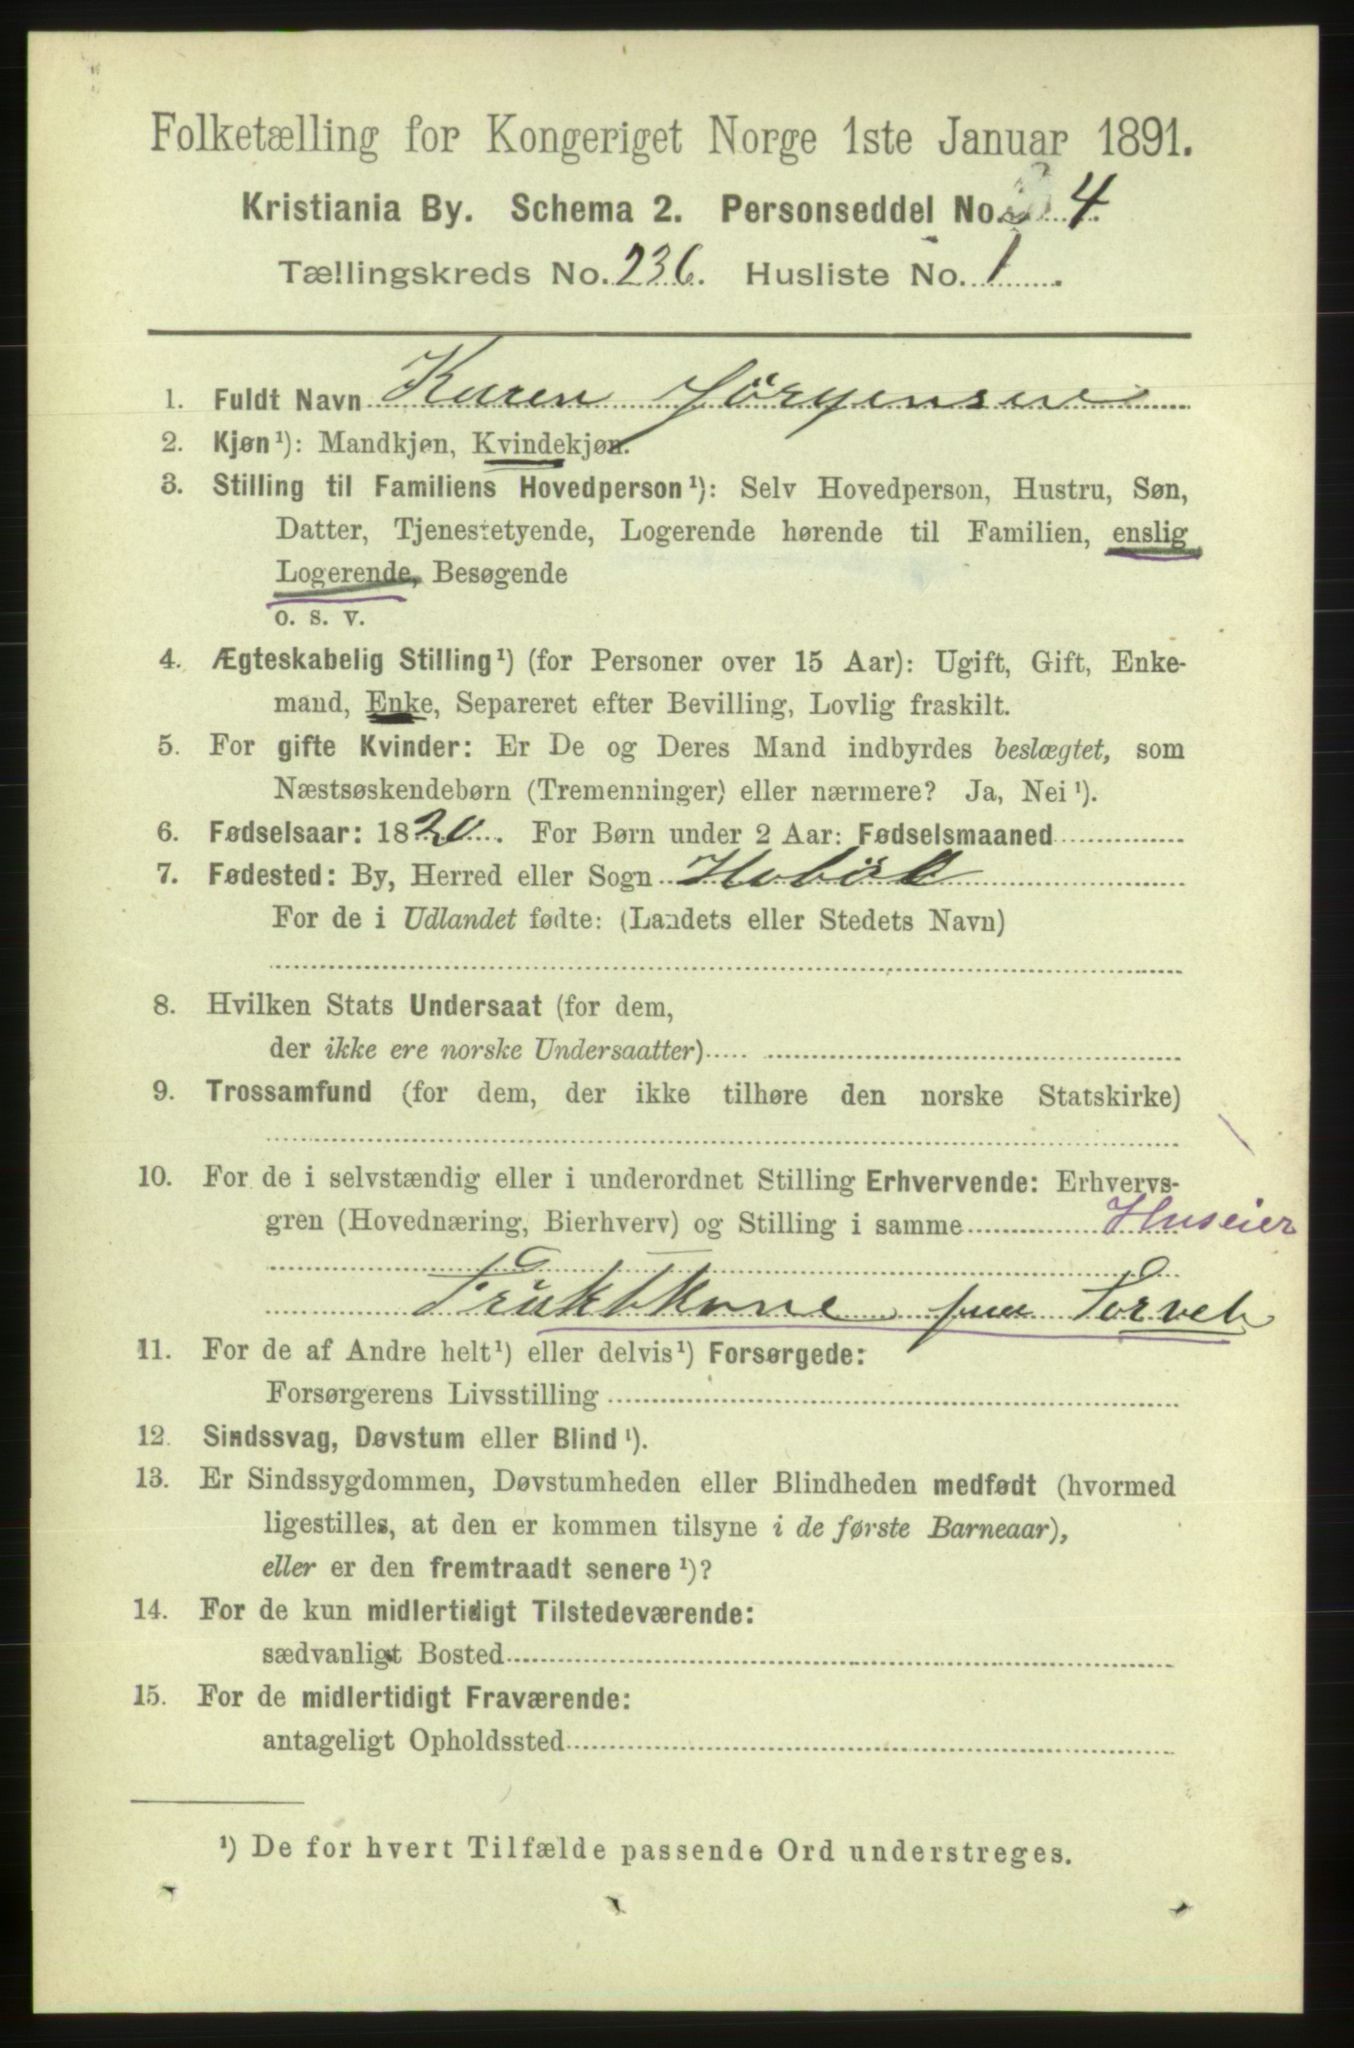 Folketælling for Kongeriget Norge 1ste Januar 1891.
Kristiania By. Schema 2. Personseddel No. 4
Tællingskreds No. 236. Husliste No. 1.
1. Fuldt Navn Karen Jörgensen
2. Kjøn¹): Mandkjøn, Kvindekjøn.
3. Stilling til Familiens Hovedperson¹): Selv Hovedperson, Hustru, Søn,
Datter, Tjenestetyende, Logerende hørende til Familien, enslig
Logerende, Besøgende
o. s. v.
4. Ægteskabelig Stilling¹) (for Personer over 15 Aar): Ugift, Gift, Enke-
mand, Enke, Separeret efter Bevilling, Lovlig fraskilt.
5. For gifte Kvinder: Er De og Deres Mand indbyrdes beslægtet, som
Næstsøskendebørn (Tremenninger) eller nærmere? Ja, Nei¹).
6. Fødselsaar: 1820. For Børn under 2 Aar: Fødselsmaaned
7. Fødested: By, Herred eller Sogn Hoböl
For de i Udlandet fødte: (Landets eller Stedets Navn)
8. Hvilken Stats Undersaat (for dem,
der ikke ere norske Undersaatter)
9. Trossamfund (for dem, der ikke tilhøre den norske Statskirke)
10. For de i selvstændig eller i underordnet Stilling Erhvervende: Erhvervs-
gren (Hovednæring, Bierhverv) og Stilling i samme Huseier
Früktkone paa Torvet
11. For de af Andre helt¹) eller delvis¹) Forsørgede:
Forsørgerens Livsstilling
12. Sindssvag, Døvstum eller Blind¹).
13. Er Sindssygdommen, Døvstumheden eller Blindheden medfødt (hvormed
ligestilles, at den er kommen tilsyne i de første Barneaar),
eller er den fremtraadt senere¹)?
14. For de kun midlertidigt Tilstedeværende:
sædvanligt Bosted
15. For de midlertidigt Fraværende:
antageligt Opholdssted
¹) De for hvert Tilfælde passende Ord understreges.